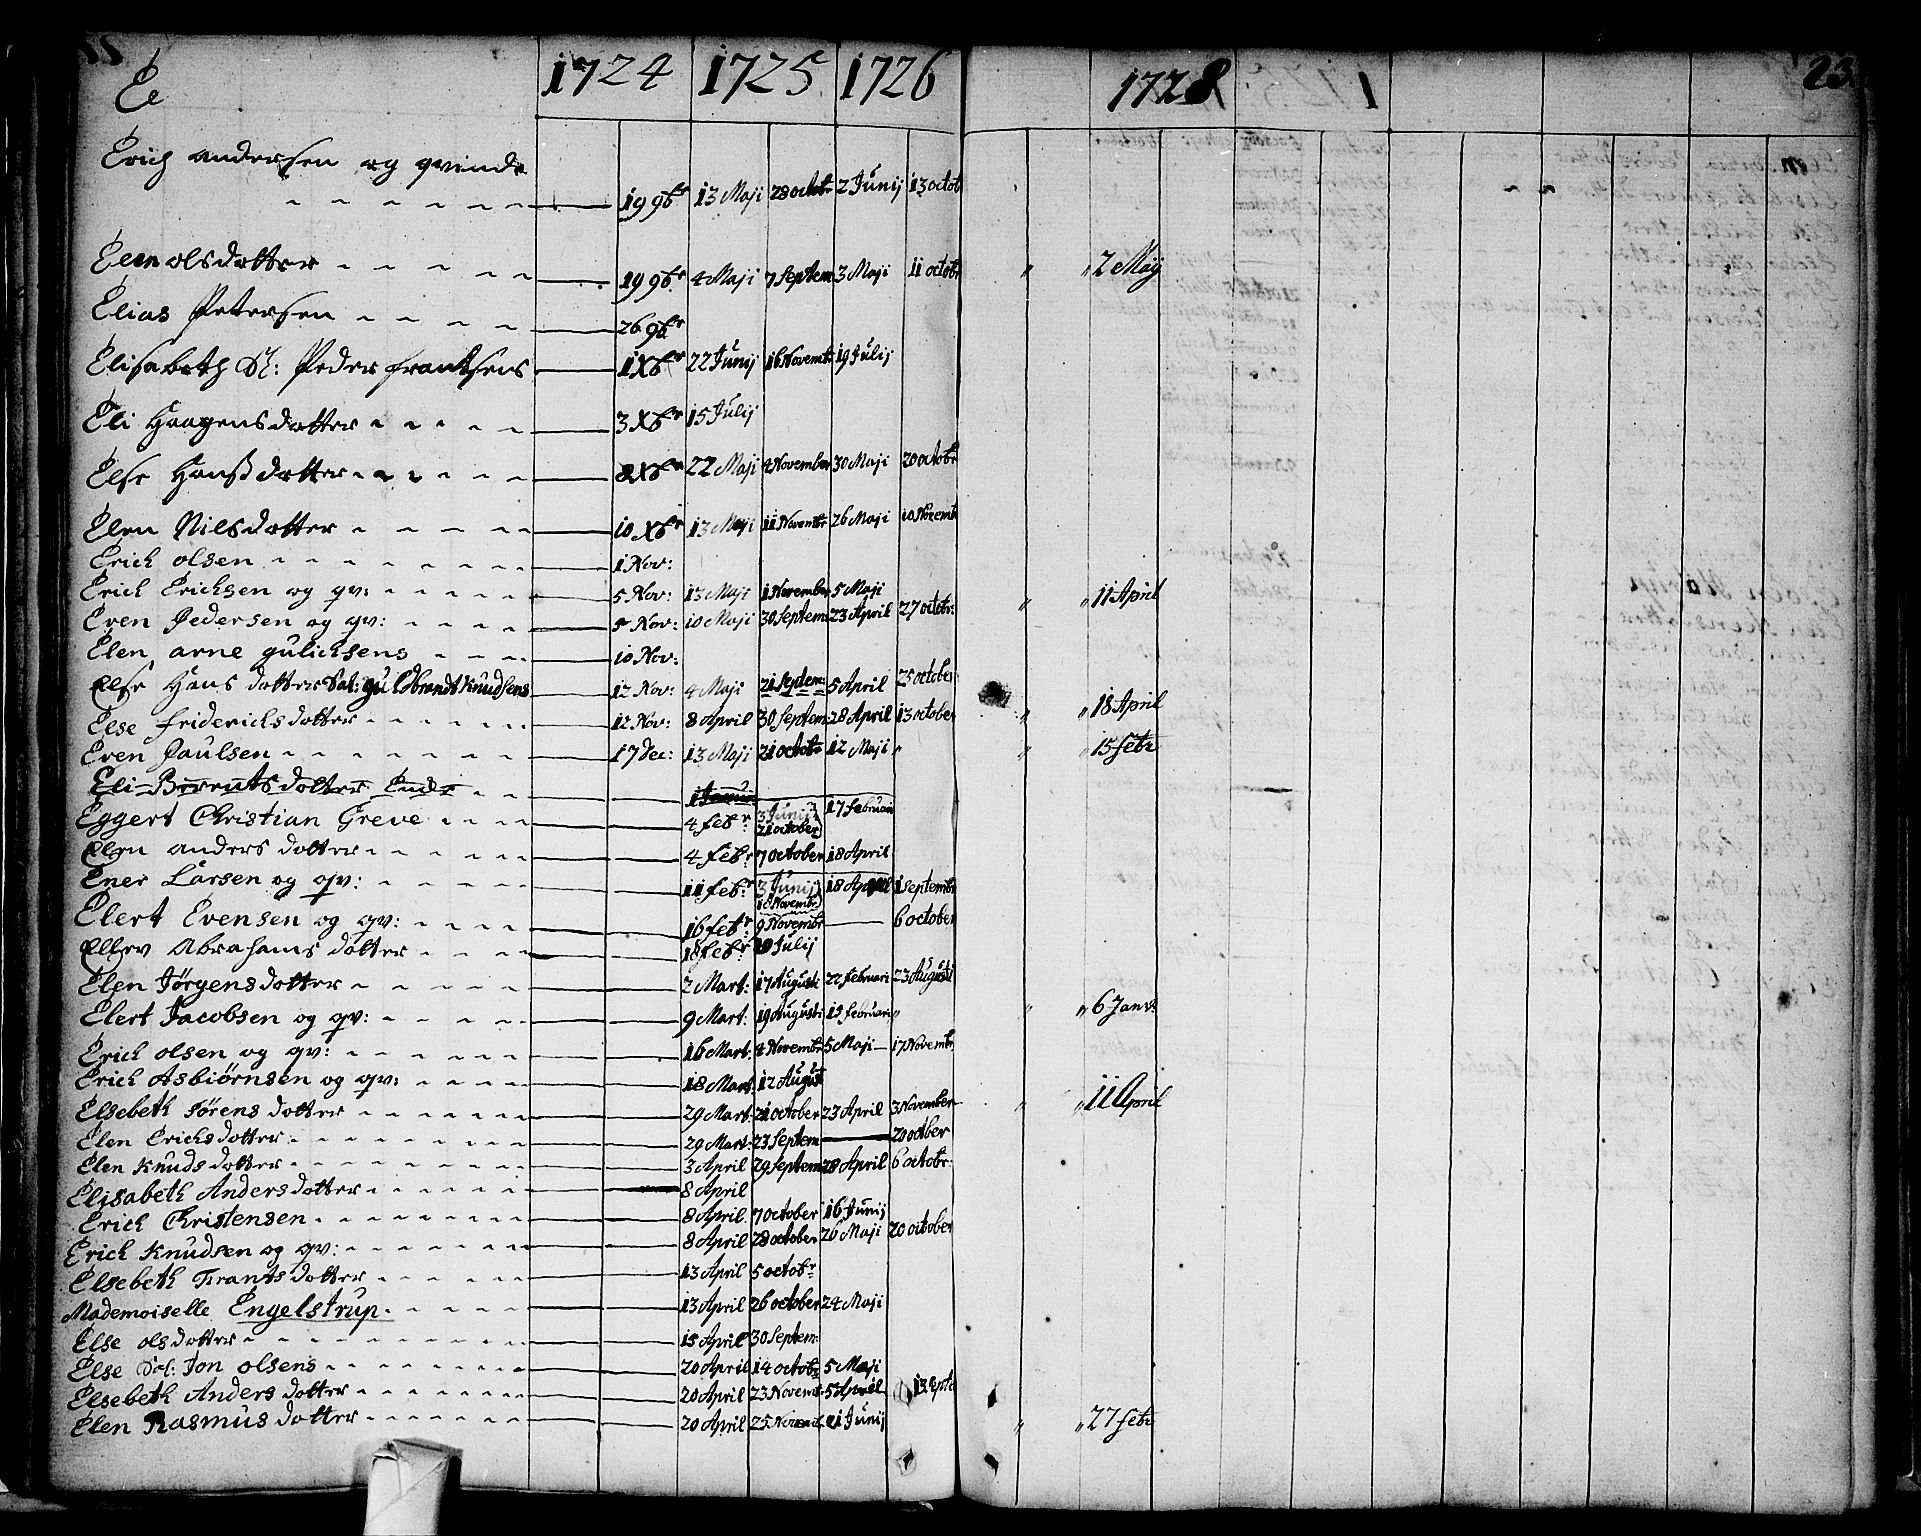 E 1724 1725 1726 1728 23
Erich andersen og qvinde
19 9br 13 Maji 28 octobr 2 Junij 13 octob
Elen olsdotter 19 9br 4 Maji 7 Septem 3 Maji 11 octobr 2 Maij
Elias Petersen 26 9br
Elisabeth Sl: Peder frantsens 1 Xbr 22 Junij 16 Novembr 19 Julij
Eli Haagensdotter 3 Xbr 15 Julij
Else Hansdotter 8 Xbr 22 Maji 4 November 30 Maji 20 octobr
Elen Nilsdotter 10 Xbr 13 Maji 11 Novembr 26 Maji 10 Novemb
Erich olsen 1 Nov:
Erich Erichsen og qv: 5 Nov: 13 Maji 1 November 5 Maji 11 April
Even Pedersen og qv: 5 Nov: 10 Maji 30 Septem: 23 April 27 octobr:
Elen arne gulichsens 10 Nov:
Else Hans dotter Sal: guldbrandt Knudsens 12 Nov: 4 Maji 21 Septem: 5 April 25 october
Else friderichsdotter 12 Nov: 8 April 30 Septem: 28 April 13 october 18 April
Even Paulsen 17 Dec: 13 Maji 21 octobr 12 Maji " 15 febr
Eli Berentsdotter
Eggert Christian Greve 4 febr: 3 Junij 21 october 17 februari
Elen anders dotter 4 febr: 7 october 18 April
Ener Larsen og qv: 11 febr: 3 Junij 18 Novembr 18 April 1 Septembr
Elert Evensen og qv: 16 febr 9 Novembr 6 october
Abrahams dotter 18 febr: 19 Julij
Elen Jörgensdotter 2 Mart: 17 Augusti 22 februari 23 Augusti
Elert Jacobsen og qv: 9 Mart: 19 Augusti 15 februari " 6 Janv:
Erich olsen og qv: 16 Mart: 4 Novembr 5 Maji 17 Novembr
Erich Asbiörnsen og qv: 18 Mart: 12 August
Elsebeth Sörens dotter 29 Mart: 21 october 23 April 3 November 11 April
Elen Erichsdotter 29 Mart: 23 Septem 20 octber
Elen Knudsdotter 3 April 29 Septem 28 April 6 octobr:
Elisabeth Andersdotter 8 April
Erich Christensen 8 April 7 october 16 Junij
Erich Knudsen og qv: 8 April 28 october 26 Maji 20 october
Elsebeth Frantsdotter 13 April 5 octobr
Mademoiselle Engelstrup 13 April 26 october 24 Maji
Else olsdotter 15 April 30 Septem:
Else Sal: Jon olsens 20 April 14 octobr 5 Maji
Elsebeth Andersdotter 20 April 23 Novemb 5 April
Elen Rasmusdotter 20 April 25 Novemb 21 Junij 27 febr